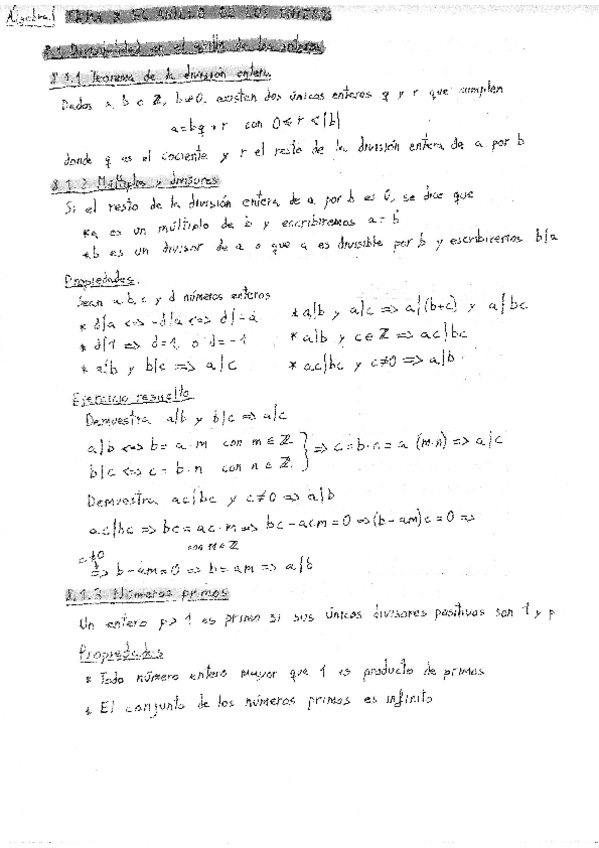 Algebra I TEMA 8 EL ANILLO DE LOS ENTEROS
8.1 Divisibilidad en el anillo de los enteros
8.1.1 Teorema de la división entera
Dados a, b ∈ ℤ, b≠0. existen dos únicos enteros q y r que cumplen
a=bq+r con 0≤r<|b|
donde q es el cociente y r el resto de la división entera de a por b
8.1.2 Múltiplos y divisores
Si el resto de la división entera de a por b es 0, se dice que
*a es un múltiplo de b y escribiremos a=ḃ
*b es un divisor de a o que a es divisible por b y escribiremos b|a
Propiedades.
Sean a, b, c y d números enteros
* d|a <=> -d|a <=> d|-a
* d|1 => d=1 o d=-1
* a|b y b|c => a|c
* a|b y a|c => a|(b+c) y a|bc
* a|b y c∈ℤ => ac|bc
* ac|bc y c≠0 => a|b
Ejercicio resuelto
Demuestra a|b y b|c => a|c
a|b <=> b=a·m con m∈ℤ
b|c <=> c=b·n con n∈ℤ } => c=b·n=a(m·n) => a|c
Demuestra ac|bc y c≠0 => a|b
ac|bc => bc=ac·m => bc-acm=0 => (b-am)c=0 =>
con m∈ℤ
c≠0
=> b-am=0 => b=am => a|b
8.1.3 Números primos
Un entero p>1 es primo si sus únicos divisores positivos son 1 y p
Propiedades
* Todo número entero mayor que 1 es producto de primos
* El conjunto de los números primos es infinito